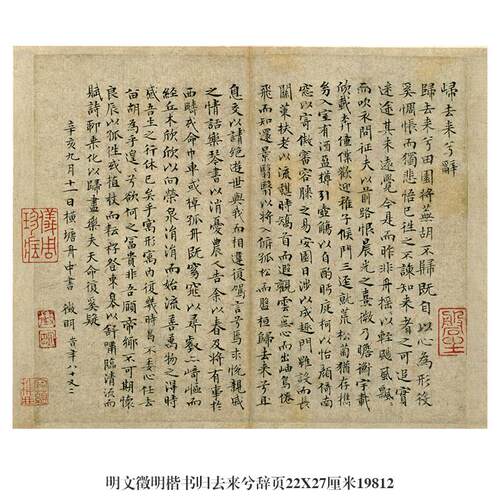 歸去来兮辭
歸去来兮田園將蕪胡不歸既自以心為形役
奚惆悵而獨悲悟已往之不諫知来者之可追實
迷途其未遠覺今是而昨非舟搖搖以輕颺風飄飄
而吹衣問征夫以前路恨晨光之熹微乃瞻衡宇載
欣載奔僮僕歡迎稚子候門三逕就荒松菊猶存攜
幼入室有酒盈樽引壺觴以自酌眄庭柯以怡顏倚南
窓以寄傲審容膝之易安園日涉以成趣門雖設而長
關策扶老以流憩時矯首而遐觀雲無心而出岫鳥倦
飛而知還景翳翳以將入撫孤松而盤桓歸去来兮且
息交以請絕遊世與我而相遺復駕言兮焉求悅親戚
之情話樂琴書以消憂農人告余以春及將有事於
西疇或命巾車或棹孤舟既窈窕以尋壑亦崎嶇而
經丘木欣欣以向榮泉涓涓而始流善萬物之得時
感吾生之行休已矣乎寓形宇内復幾時曷不委心任去
留胡為乎遑遑兮欲何之富貴非吾願帝鄉不可期懷
良辰以孤往或植杖而耘耔登東皋以舒嘯臨清流而
賦詩聊乘化以歸盡樂夫天命復奚疑
辛亥九月十一日橫塘舟中書 徵明 時年八十又二
明文徵明楷书归去来兮辞页22X27厘米19812